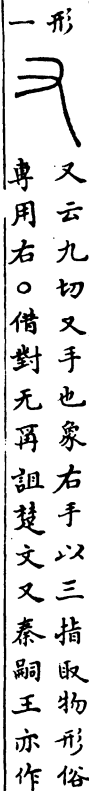 形一
又云九切又手也象右手以三指取物形俗
專用右○借對无再詛楚文又秦嗣王亦作